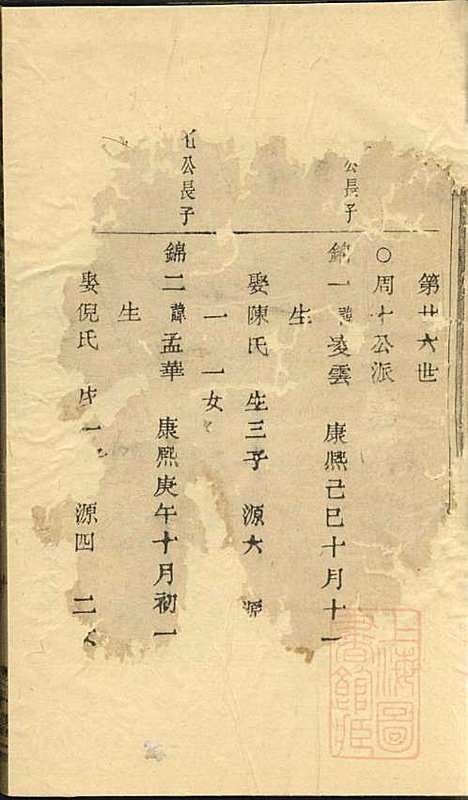 第廿六世
○周十公派
公長子
錦一諱凌雲 康熙己巳十月十一
生
娶陳氏 生三子 源六 源
一 一女
公長子
錦二諱孟華 康熙庚午十月初一
生
娶倪氏 生一 源四 二
上海圖書館